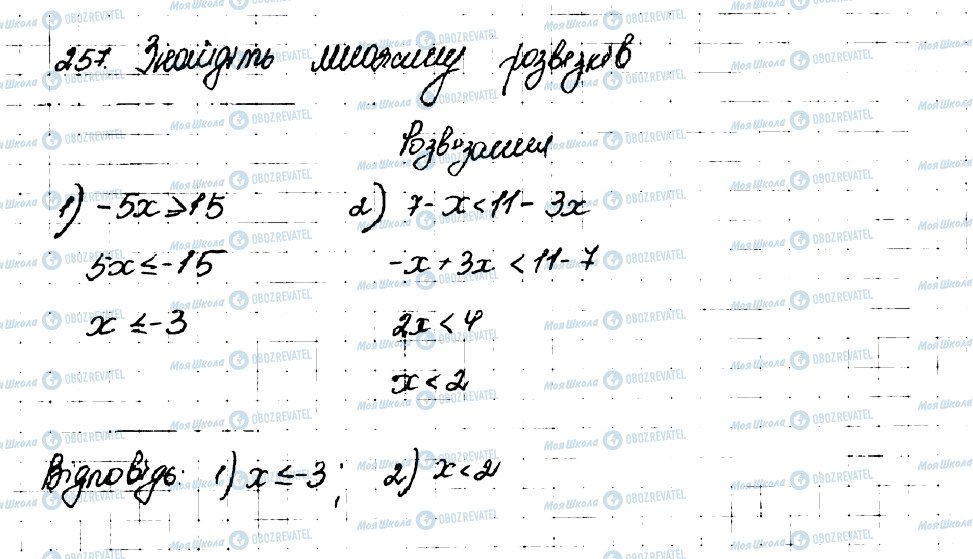 257. Знайдіть множину розвязків
Розвязання
1) -5x ⩾ 15
5x ≤ -15
x ≤ -3
2) 7 - x < 11 - 3x
-x + 3x < 11 - 7
2x < 4
x < 2
Відповідь: 1) x ≤ -3; 2) x < 2